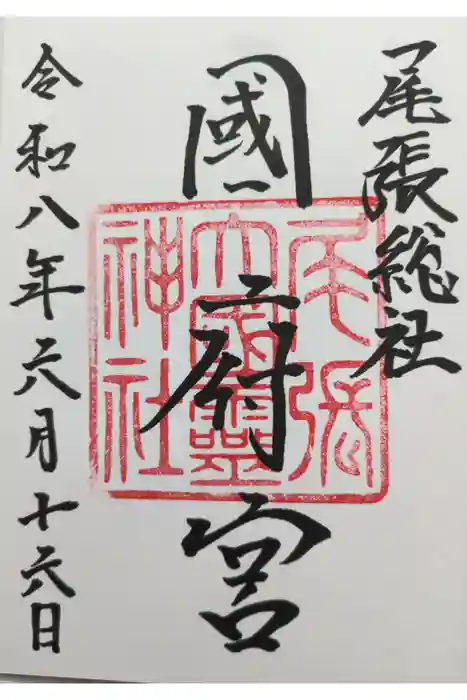 尾張総社
國府宮
令和八年六月十六日
尾張
大國霊
神社